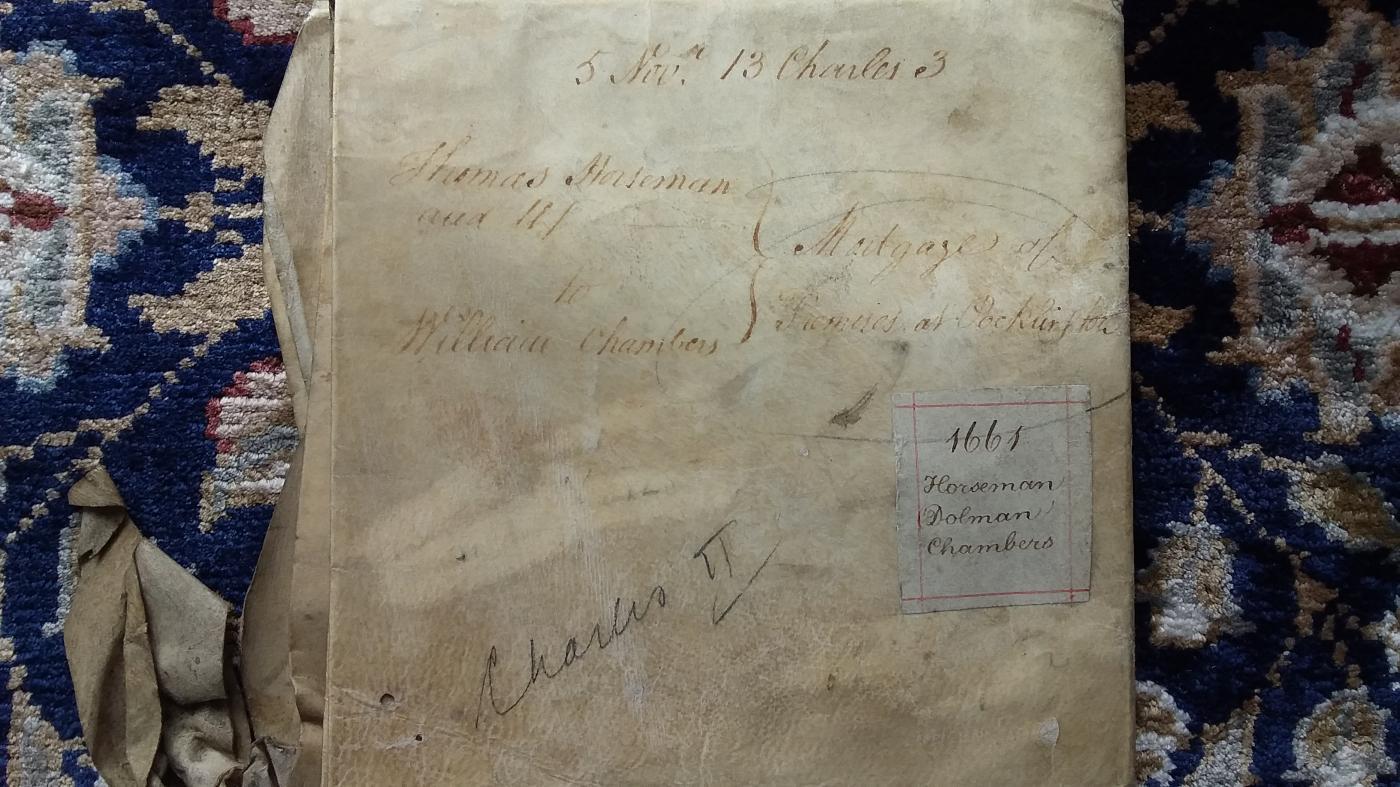 5 Nov.r 13 Charles 3
Thomas Horseman
and
to
William Chambers
Mortgage of
Premises at Pocklington
1661
Horseman
Dolman
Chambers
Charles II